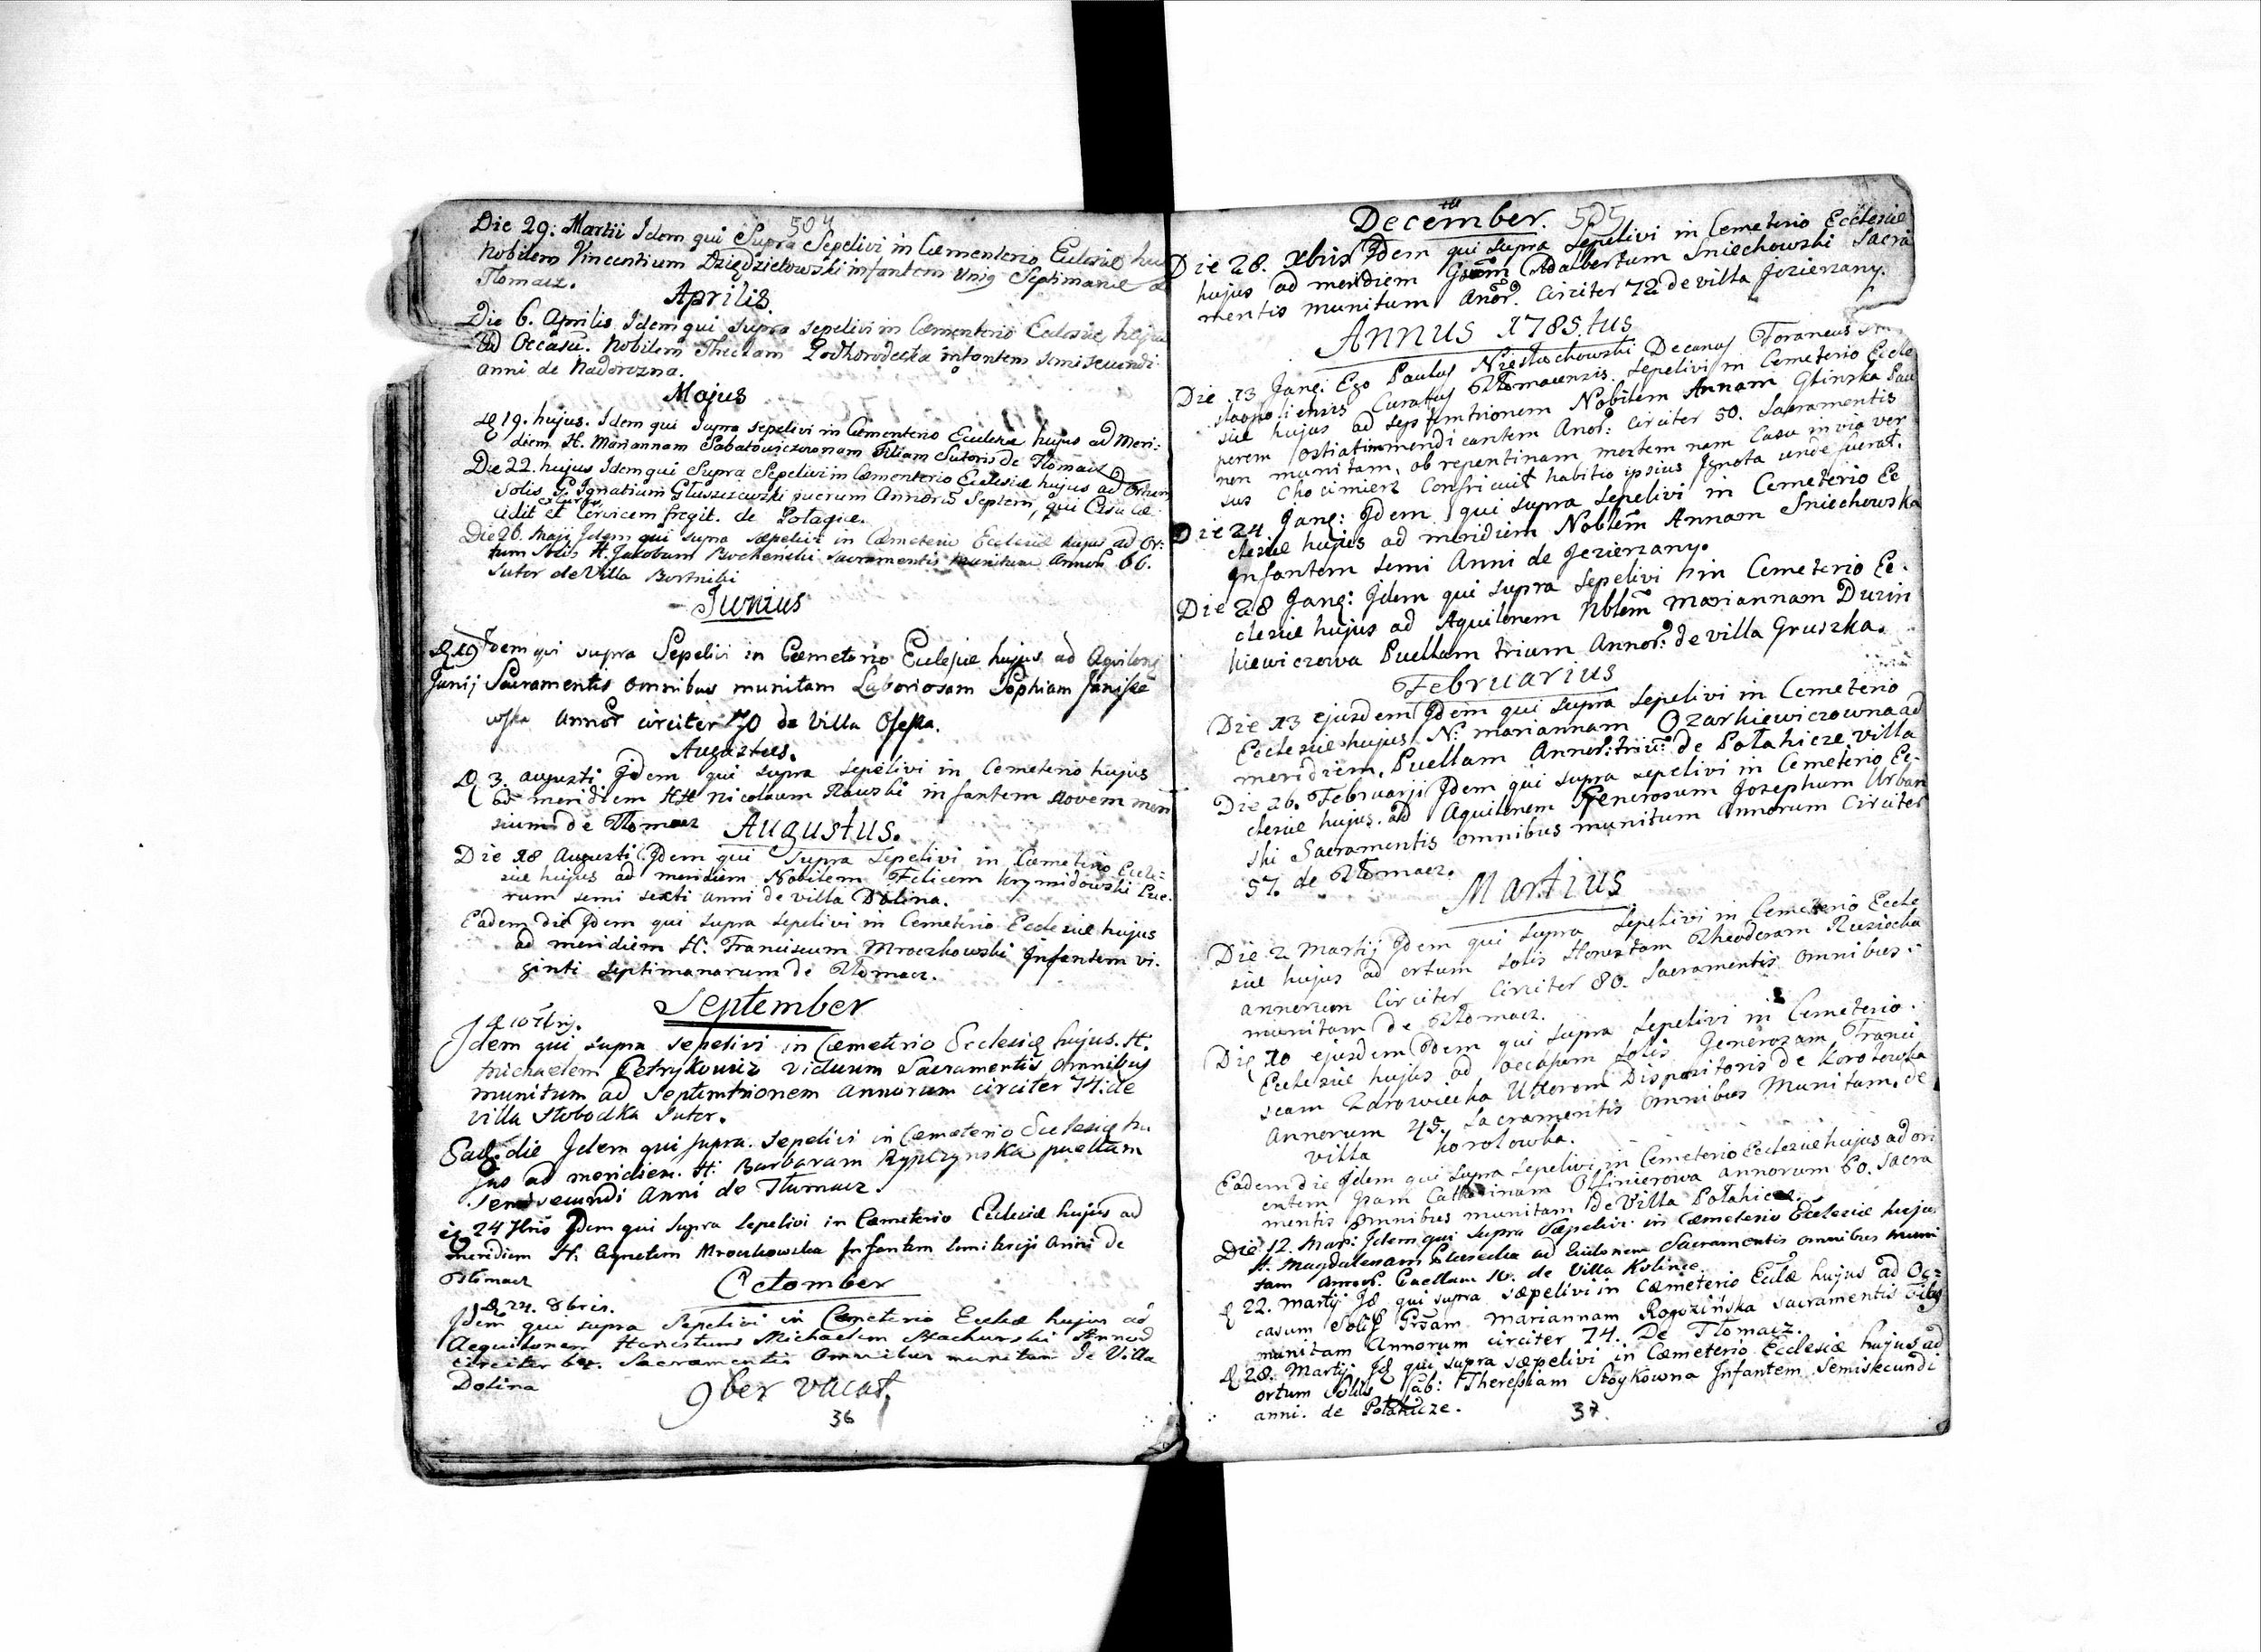 504
Die 29. Martii Idem qui Supra Sepelivi in Cæmenterio Eclesiæ hu
Nobilem Vincentium Dziędzielowski infantem unig Septimanæ
Tłomacz.
Aprilis
Die 6. Aprilis Idem qui supra sepelivi in Cæmenterio Eclesiæ hujus
ad Occasū. Nobilem Theclam Podhorodecka infantem semi secundi
anni de Nadorozna.
Majus
D 19. hujus. Idem qui supra sepelivi in Cæmenterio Ecclesiæ hujus ad Meri:
diem H. Mariannam Sabatowiczownam Filiam Sutoris de Tłomacz
Die 22. hujus Idem qui Supra Sepelivi in Cæmenterio Ecclesiæ hujus ad Ortum
Solis G Ignatium Głuszczewski puerum Annorū Septem, qui Casu ce
cidit et Cervicem fregit. de
Die 26. Maji Idem qui supra sæpelivi in Cæmeterio Ecclesiæ hujus ad Or:
tum Solis H. Jacobum Bochenski sacramentis munitum Annor 66.
Sutor de Villa Bortniki
Junius
D 19 Idem qui supra Sepelivi in Cæmeterio Ecclesiæ hujus ad Aquilonē
Junij Sacramentis omnibus munitam Laboriosam Sophiam Janisze
wska Annor circiter 70 de Villa
Augustus.
D 3. augusti Idem qui supra sepelivi in Cemeterio hujus
ad meridiem HH Nicolaum Rawski infantem novem men
sium de Tłomacz
Augustus.
Die 18 Augusti Idem qui supra sepelivi in Cæmeterio Eccle:
siæ hujus ad meridiem Nobilem Felicem Krzmidowski Pue
rum semi sexti anni de villa Dolina.
Eadem die Idem qui supra sepelivi in Cemeterio Ecclesiæ hujus
ad meridiem H: Franciscum Mroczkowski Infantem vi.
ginti septimanarum de Tłomacz.
September
d 10 7bris.
Idem qui supra sepelivi in Cæmeterio Ecclesiæ hujus. H.
Michaelem Petrykowicz viduum Sacramentis Omnibus
munitum ad Septemtrionem Annorum circiter 74. de
Villa Słobodka Sutor.
Eadē die Idem qui supra. sepelivi in Cæmeterio Ecclesiæ hu
jus ad meridiem. H: Barbaram Rypczynska puellam
semisecundi Anni de Tłumacz.
24 7bris Idem qui supra Sepelivi in Cæmeterio Ecclesiæ hujus ad
meridiem H. Agnetem Mroczkowska Infantem semi tertij Anni de
Tłomacz
Octomber
d 24. 8bris.
Idem qui supra Sepelivi in Cemeterio Eccliæ hujus ad
Aequilonem Honestum Michaelem Stachurski Annorū
circiter Sacramentis Omnibus munitum de Villa
Dolina
9ber vacat.
36
December. 505
Die 28. Xbris Idem qui supra sepelivi in Cemeterio Ecclesiæ
hujus ad meridiem Gsum Adalbertum Sniechowski Sacra
mentis munitum Anor. Circiter 72 de villa Jezierzany.
Annus 1785.tus
Die 13 Janū: Ego Paulus Niestuchowski Decanus Foraneus
Curatus Tłomacensis sepelivi in Cemeterio Eccle
siæ hujus ad septemtrionem Nobilem Annam Glinska Pau
perem ostiatim mendicantem Anor: circiter 50. Sacramentis
non munitam, ob repentinam mortem nam Casu in via ver
sus Chocimierz Confricuit habitio ipsius Ignota unde fuerat.
Die 24. Janū: Idem qui supra sepelivi in Cemeterio Ec
clesiæ hujus ad meridiem Noblem Annam Sniechowska
Infantem semi Anni de Jezierzany.
Die 28 Janū: Idem qui supra sepelivi in Cemeterio Ec.
clesiæ hujus ad Aquilonem Nblem Mariannam Duzin
kiewiczowa Puellam trium Annor: de villa Gruszka.
Februarius
Die 13 ejusdem Idem qui supra sepelivi in Cemeterio
Ecclesiæ hujus N: Mariannam Ozarkiewiczowna ad
meridiem. Puellam Annor: triū: de Połahicze villa
Die 26. Februarij Idem qui supra sepelivi in Cemeterio Ec-
clesiæ hujus. ad Aquilonem Generosum Josephum Urban
ski Sacramentis omnibus munitum Annorum Circiter
57. de Tłomacz.
Martius
Die 2 Martij Idem qui supra sepelivi in Cemeterio Eccle
siæ hujus ad ortum solis Honestam Theodoram Ruziocka
annorum Circiter Circiter 80. Sacramentis omnibus:
munitam de Tłomacz.
Die 10 ejusdem Idem qui supra sepelivi in Cemeterio.
Ecclesiæ hujus ad occasum solis Generozam Franci
scam Zdrowiecka Uxorem Dispozitoris de Korolowka
Annorum 45, Sacramentis omnibus Munitam. de
villa Korolowka.
Eadem die Idem qui supra sepelivi in Cemeterio Ecclesiæ hujus ad ori
entem Gsam Catharinam Offinierowa annorum 60. Sacra
mentis omnibus munitam de Villa Połahicze.
Die 12. Mar: Idem qui supra Sæpelivi in Cæmeterio Ecclesiæ hujus
H. Magdalenam ad Sacramentis omnibus muni
tam Annor. Puellam 10. de Villa Kolince
D 22. Martij Id qui supra sæpelivi in Cæmeterio Ecclæ hujus ad Oc=
casum Solis Grsam Mariannam Rogozińska sacramentis oibus
munitam Annorum circiter 74. De Tłomacz.
D 28. Martij Id qui supra sæpelivi in Cæmeterio Ecclesiæ hujus ad
ortum Solis Lab: Theressiam Stoykowna Infantem Semisecundi
anni. de Połahicze.
37.